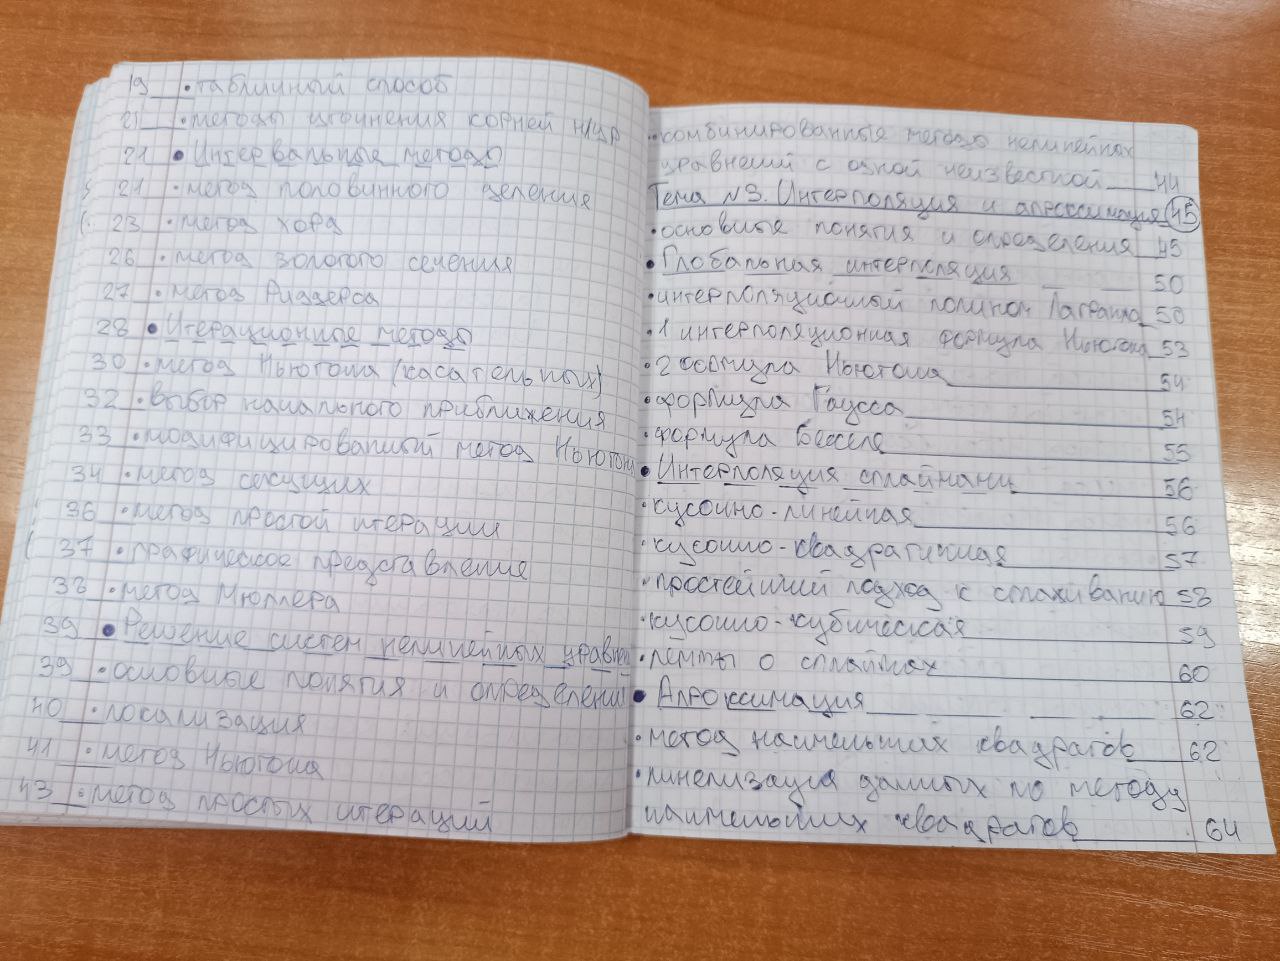 19 • табличный способ
21 • методы уточнения корней н/ур
21 • Интервальные методы
21 • метод половинного деления
23 • метод хорд
26 • метод золотого сечения
27 • метод Риддерса
28 • Итерационные методы
30 • метод Ньютона (касательных)
32 • выбор начального приближения
33 • модифицированный метод Ньютона
34 • метод секущих
36 • метод простой итерации
37 • графическое представление
38 • метод Мюллера
39 • Решение систем нелинейных уравн
39 • основные понятия и определения
40 • локализация
41 • метод Ньютона
43 • метод простых итераций
• комбинированные методы нелинейных
уравнений с одной неизвестной 44
Тема №3. Интерполяция и апроксимация 45
• основные понятия и определения 45
• Глобальная интерполяция 50
• интерполяционный полином Лагранжа 50
• 1 интерполяционная формула Ньютона 53
• 2 формула Ньютона 54
• формула Гаусса 54
• формула Бесселя 55
• Интерполяция сплайнами 56
• кусочно-линейная 56
• кусочно-квадратичная 57
• простейший подход к сглаживанию 58
• кусочно-кубическая 59
• леммы о сплайнах 60
• Апроксимация 62
• метод наименьших квадратов 62
• линеализация данных по методу
наименьших квадратов 64